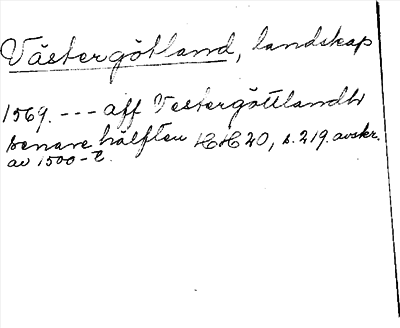 Västergötland, landskap
1569. --- aff Vestergöttlandh
senare hälften HH 20, s. 219. avskr.
av 1500-t.